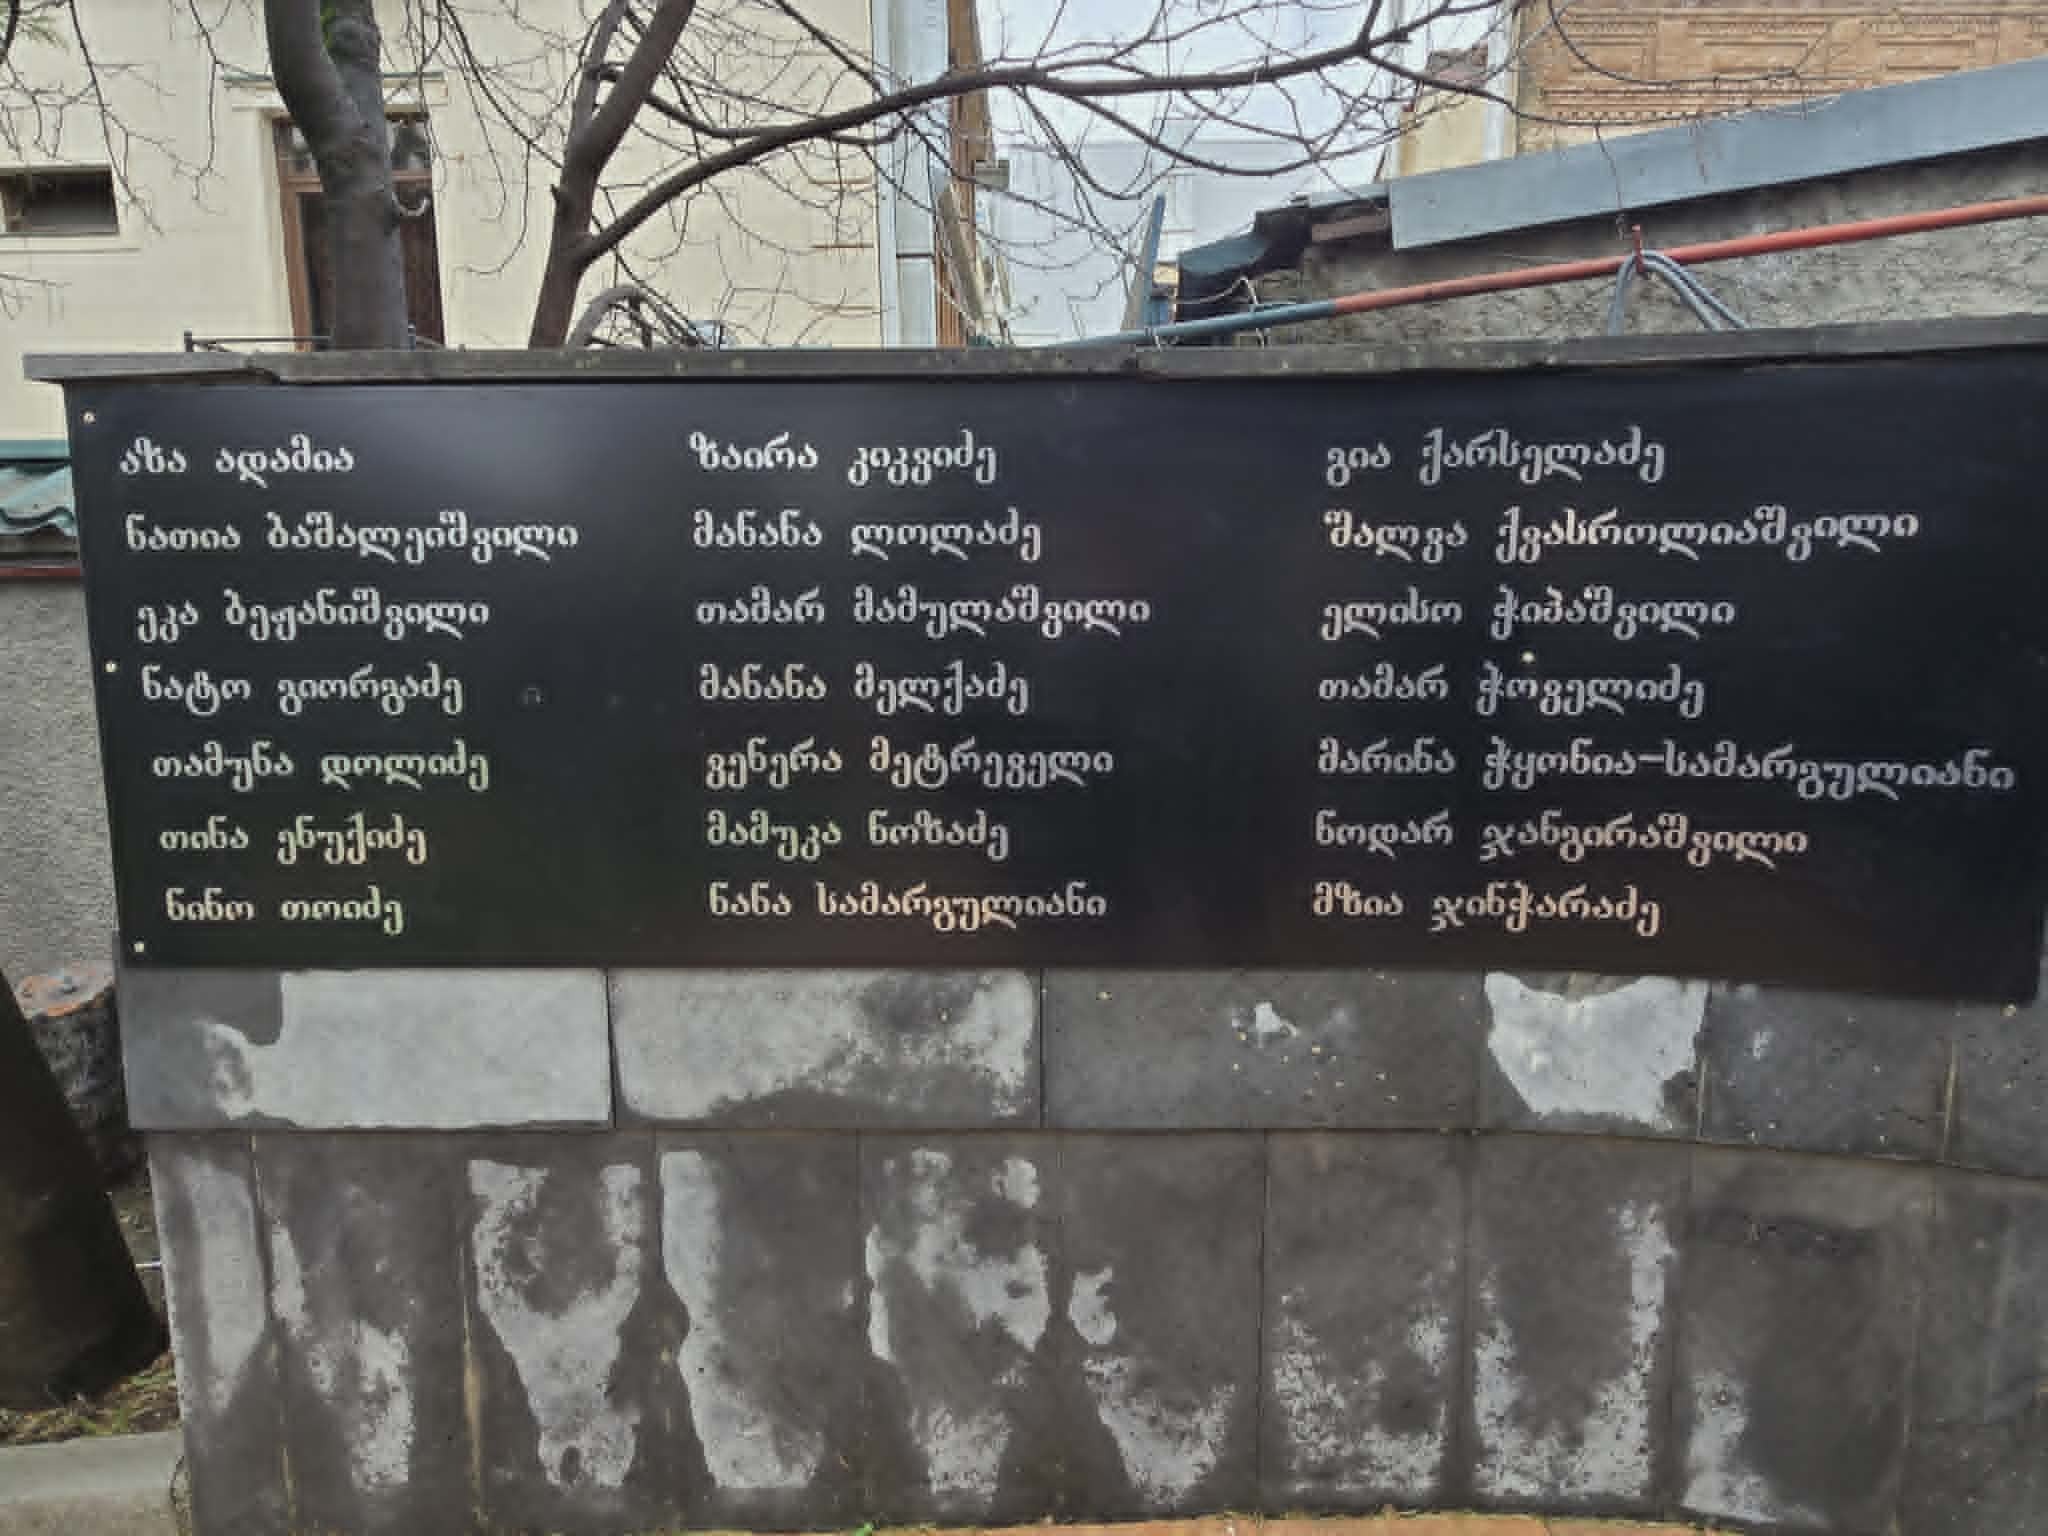 აზა ადამია
ნათია ბაშალეიშვილი
ეკა ბეჟანიშვილი
ნატო გიორგაძე
თამუნა დოლიძე
თინა ენუქიძე
ნინო თოიძე
ზაირა კიკვიძე
მანანა ლოლაძე
თამარ მამულაშვილი
მანანა მელქაძე
ვენერა მეტრეველი
მამუკა ნოზაძე
ნანა სამარგულიანი
გია ქარსელაძე
შალვა ქვასროლიაშვილი
ელისო ჭიპაშვილი
თამარ ჭოველიძე
მარინა ჭყონია-სამარგულიანი
ნოდარ ჯანგირაშვილი
მზია ჯინჭარაძე